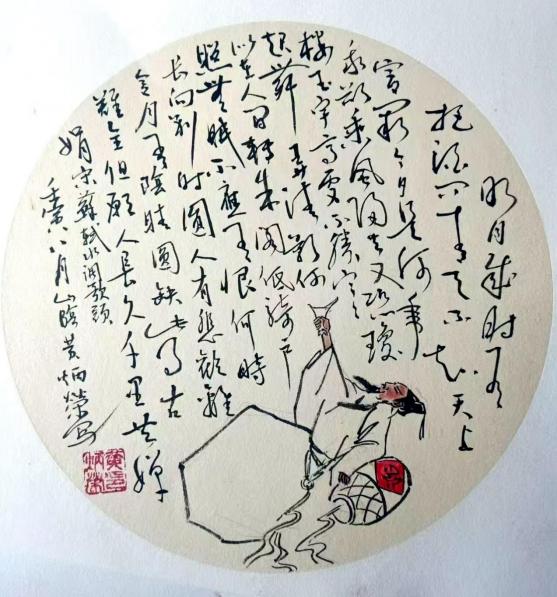 明月幾时有
把酒问青天不知天上
宫阙今夕是何年
我欲乘风归去又恐琼
楼玉宇高处不胜寒
起舞弄清影何
似在人间转朱阁低绮户
照无眠不应有恨何時
长向别时圆人有悲欢離
合月有陰晴圆缺此事古
難全但願人長久千里共婵
娟宋蘇軾水调歌头
壬寅八月黄炳荣写